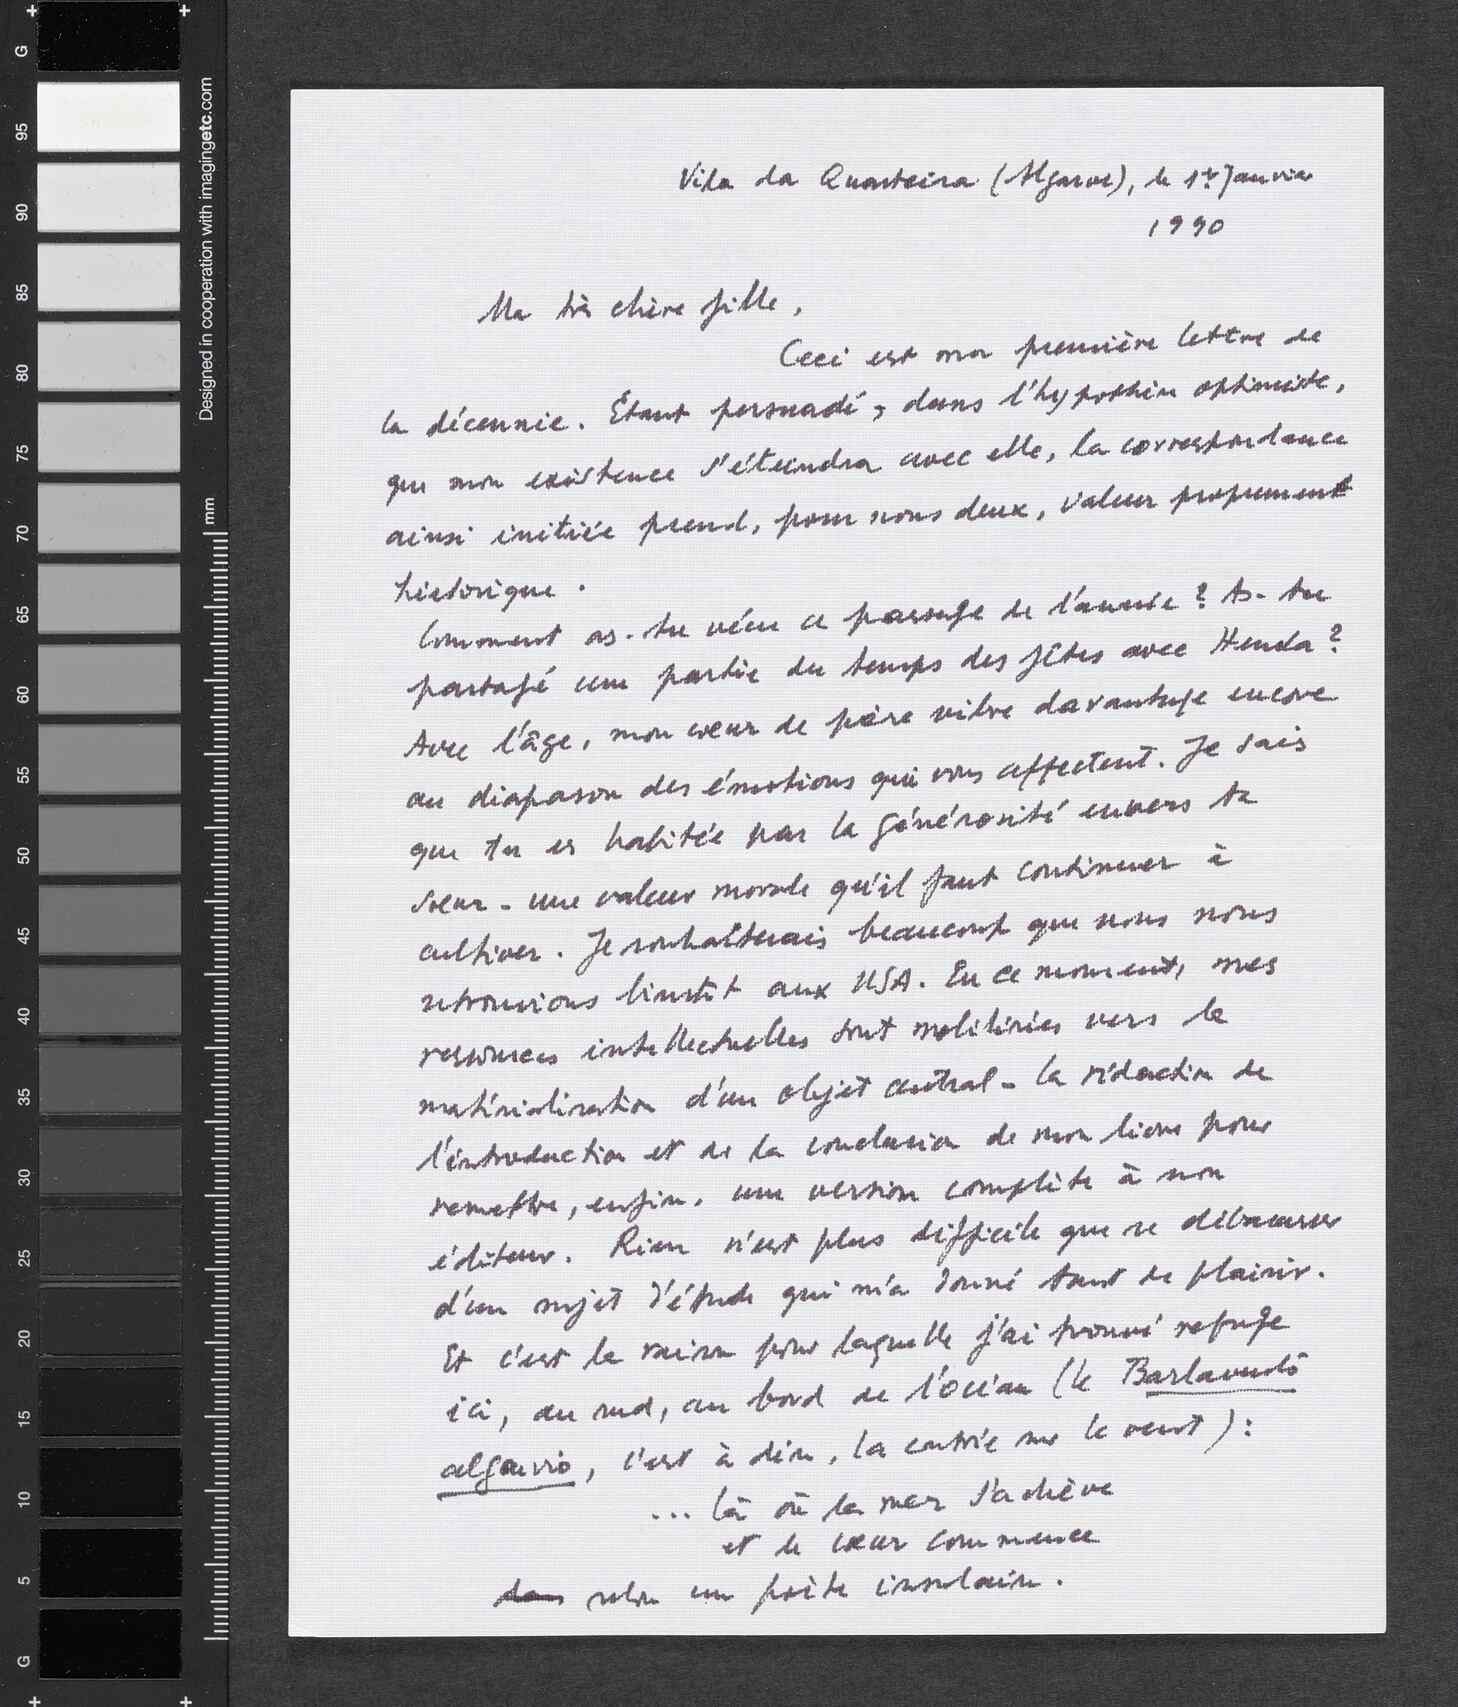 Vila da Quarteira (Algarve), le 1er Janvier
1990
Ma très chère fille,
Ceci est ma première lettre de
la décennie. Étant persuadé, dans l'hypothèse optimiste,
que mon existence s'éteindra avec elle, la correspondance
ainsi initiée prend, pour nous deux, valeur proprement
historique.
Comment as-tu vécu ce passage de l'année? As-tu
partagé une partie du temps des fêtes avec Henda?
Avec l'âge, mon cœur de père vibre davantage encore
au diapason des émotions qui vous affectent. Je sais
que tu es habitée par la générosité envers ta
sœur - une valeur morale qu'il faut continuer à
cultiver. Je souhaiterais beaucoup que nous nous
retrouvions bientôt aux USA. En ce moment, mes
ressources intellectuelles sont mobilisées vers la
matérialisation d'un objet central - la rédaction de
l'introduction et de la conclusion de mon livre pour
remettre, enfin, une version complète à mon
éditeur. Rien n'est plus difficile que se débarrasser
d'un sujet d'étude qui m'a donné tant de plaisir.
Et c'est la raison pour laquelle j'ai trouvé refuge
ici, au sud, au bord de l'Océan (le Barlavento
algarvio, c'est à dire, la contrée sur le vent):
... là où la mer s'achève
et le cœur commence
selon un poète insulaire.
G
95
90
85
80
75
70
65
60
55
50
45
40
35
30
25
20
15
10
5
G
mm
Designed in cooperation with imagingetc.com